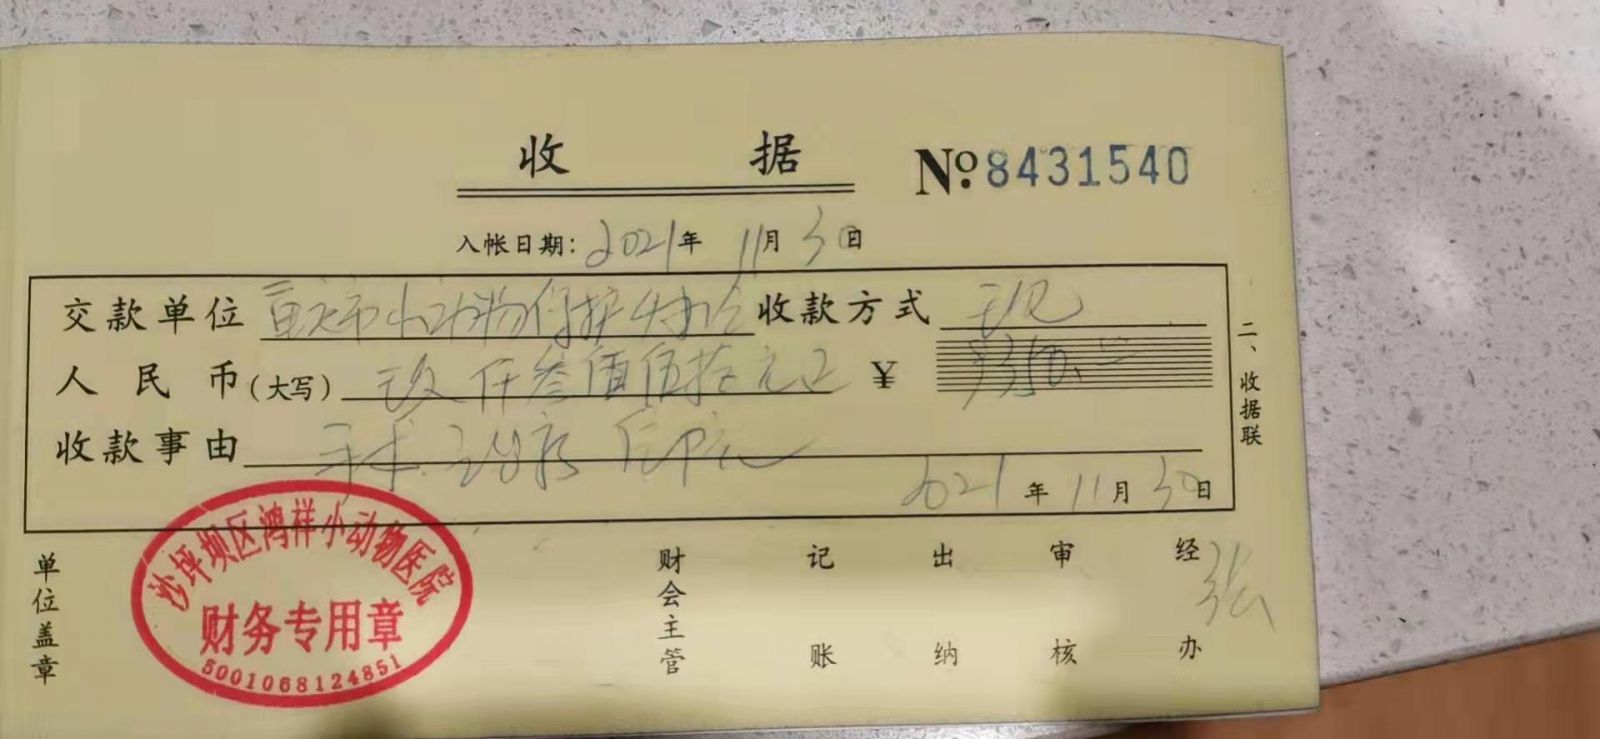 收 据 No. 8431540
入帐日期: 2021年 11月 30日
交款单位 重庆市小动物保护协会 收款方式 现
人民币(大写) 玖仟叁佰伍拾元正 ¥ 9350.00
收款事由 手术 治疗
2021年 11月 30日
二、收据联
单位盖章 财会主管 记账 出纳 审核 经办 张
沙坪坝区鸿祥小动物医院
财务专用章
5001068124851